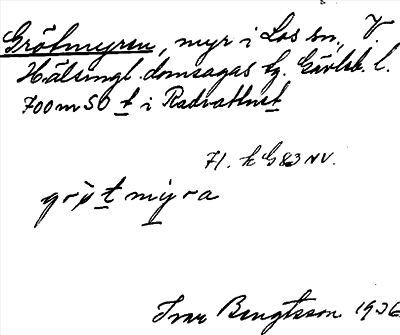 Grötmyren, myr i Los sn, V.
Hälsingl. domsagas tg. Gävleb. l.
700 m SO t i Radvattnet
71. k G 83 NV.
gröt myra
Ivar Bengtsson 1936